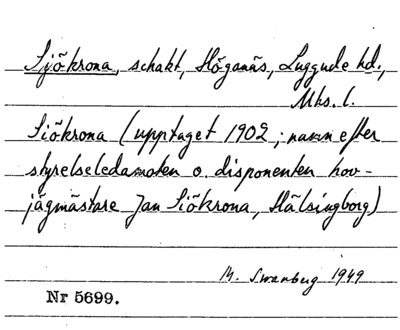 Sjökrona, schakt, Höganäs, Luggude hd.,
Mhs. l.
Siökrona (upptaget 1902; namn efter
styrelseledamoten o. disponenten hov-
jägmästare Jan Siökrona, Hälsingborg)
M. Swanberg 1949
Nr 5699.